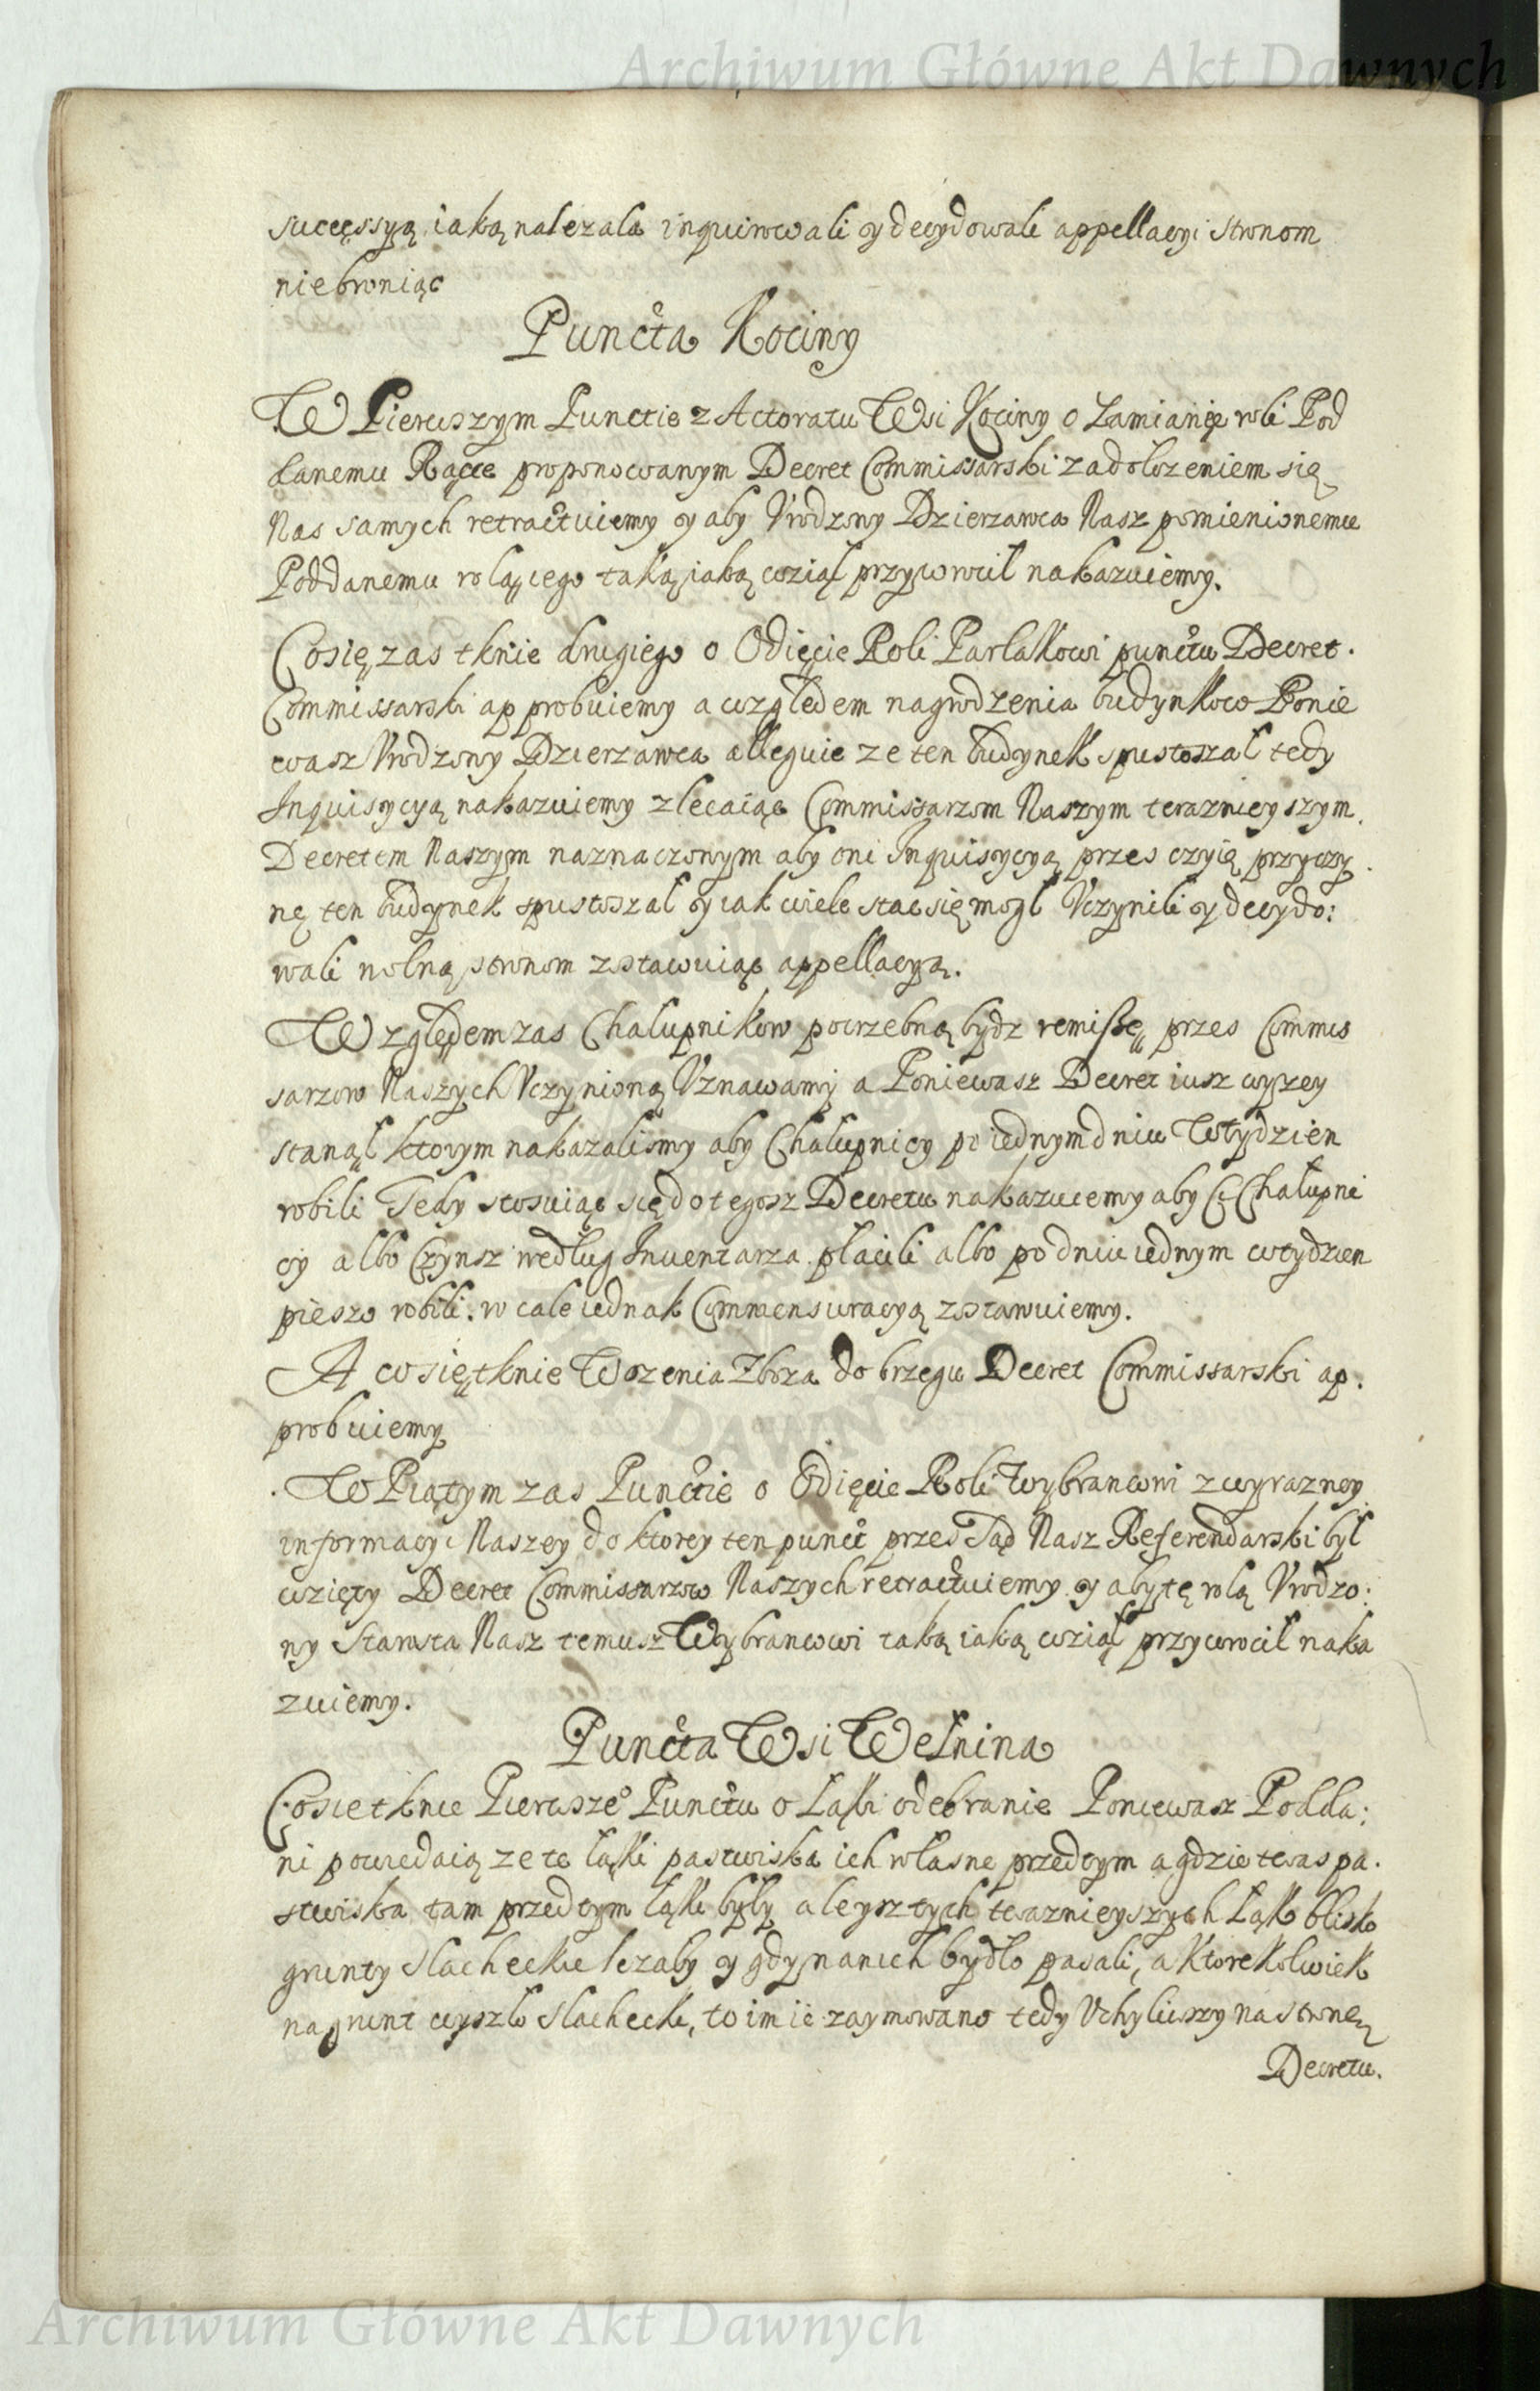 Archiwum Główne Akt Dawnych
succęssyą iaką nalezala inquirowali y decydowali appellacyi stronom
niebroniąc
Puncta Kociny
W Pierwszym Punctie z Actoratu Wsi Kociny o Zamianie roli Pod
danemu Rącce proponowanym Decret Commissarski zadolozeniem się
Nas samych retractuiemy y aby Vrodzony Dzierzawca Nasz pomienionemu
Poddanemu rolą iego taką iaką wziął przywrocił nakazuiemy.
Co się zas tknie drugiego o Odięcie Roli Parlakowi punctu Decret
Commissarski approbuiemy a względem nagrodzenia budynkow Ponie
wasz Vrodzony Dzierzawca alleguie ze ten budynek spustoszał tedy
Inquisycyą nakazuiemy zlecaiąc Commissarzom Naszym teraznieyszym
Decretem Naszym naznaczonym aby oni Inquisycyą przes czyią przyczy
nę ten budynek spustoszał y iak wiele stac się mogł Vczynili y decydo:
wali wolną stronom zostawuiąc appellacyą.
Względem zas Chalupnikow potrzebną bydz remissę przes Commis
sarzow Naszych Vczynioną Vznawamy a Poniewasz Decret iusz wyzey
stanął ktorym nakazalismy aby Chalupnicy po iednym dniu W tydzien
robili Tedy stosuiąc się do tegosz Decretu nakazuiemy aby Ci Chałupni
cy albo Czynsz według Inuentarza płacili albo po dniu iednym w tydzien
pieszo robili. w cale iednak Commensuracyą zostawuiemy.
A co się tknie Wozenia Zboza do brzegu Decret Commissarski ap.
probuiemy
W Piątym zas Punctie o Odięcie Roli Wybrancowi z wyrazney
informacyi Naszey do ktorey ten punct przes Sąd Nasz Referendarski był
wzięty Decret Commissarzow Naszych retractuiemy y aby tę rolą Vrodzo:
ny Starosta Nasz temusz Wybrancowi taką iaką wziął przywrocił naka
zuiemy.
Puncta Wsi Wełnina
Co się tknie Pierwszeo Punctu o Łąki odebranie Poniewasz Podda:
ni powiedaią ze te łąki pastwiska ich własne przedtym a gdzie teras pa.
stwiska tam przedtym łąki były aleysz tych teraznieyszych Łąk blisko
grunty Slacheckie lezały y gdy na nich bydło pasali, a ktorekolwiek
na grunt wyszło Slachecki, to im ie zaymowano tedy Vchyliwszy na stronę
Decretu.
Archiwum Główne Akt Dawnych